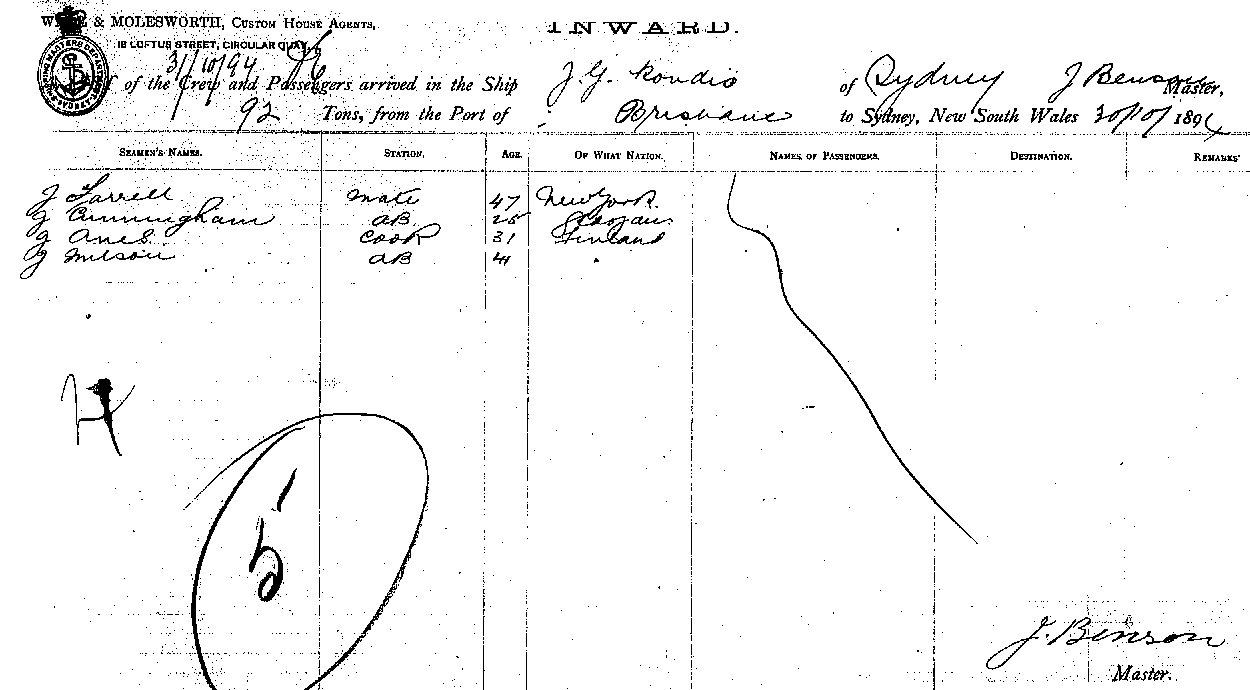 & MOLESWORTH, CUSTOM HOUSE AGENTS,
INWARD.
18 LOFTUS STREET, CIRCULAR QUAY,
31/10/94
of the Crew and Passengers arrived in the Ship J. G. of Sydney J Benson Master,
92 Tons, from the Port of Brisbane to Sydney, New South Wales 30/10/ 1894
SEAMEN'S NAMES. STATION. AGE. OF WHAT NATION. NAMES OF PASSENGERS. DESTINATION. REMARKS
J Farrell mate 47 New York
J Cunningham AB 25
J Cook 31 Finland
J AB
4
5
J. Benson
Master.